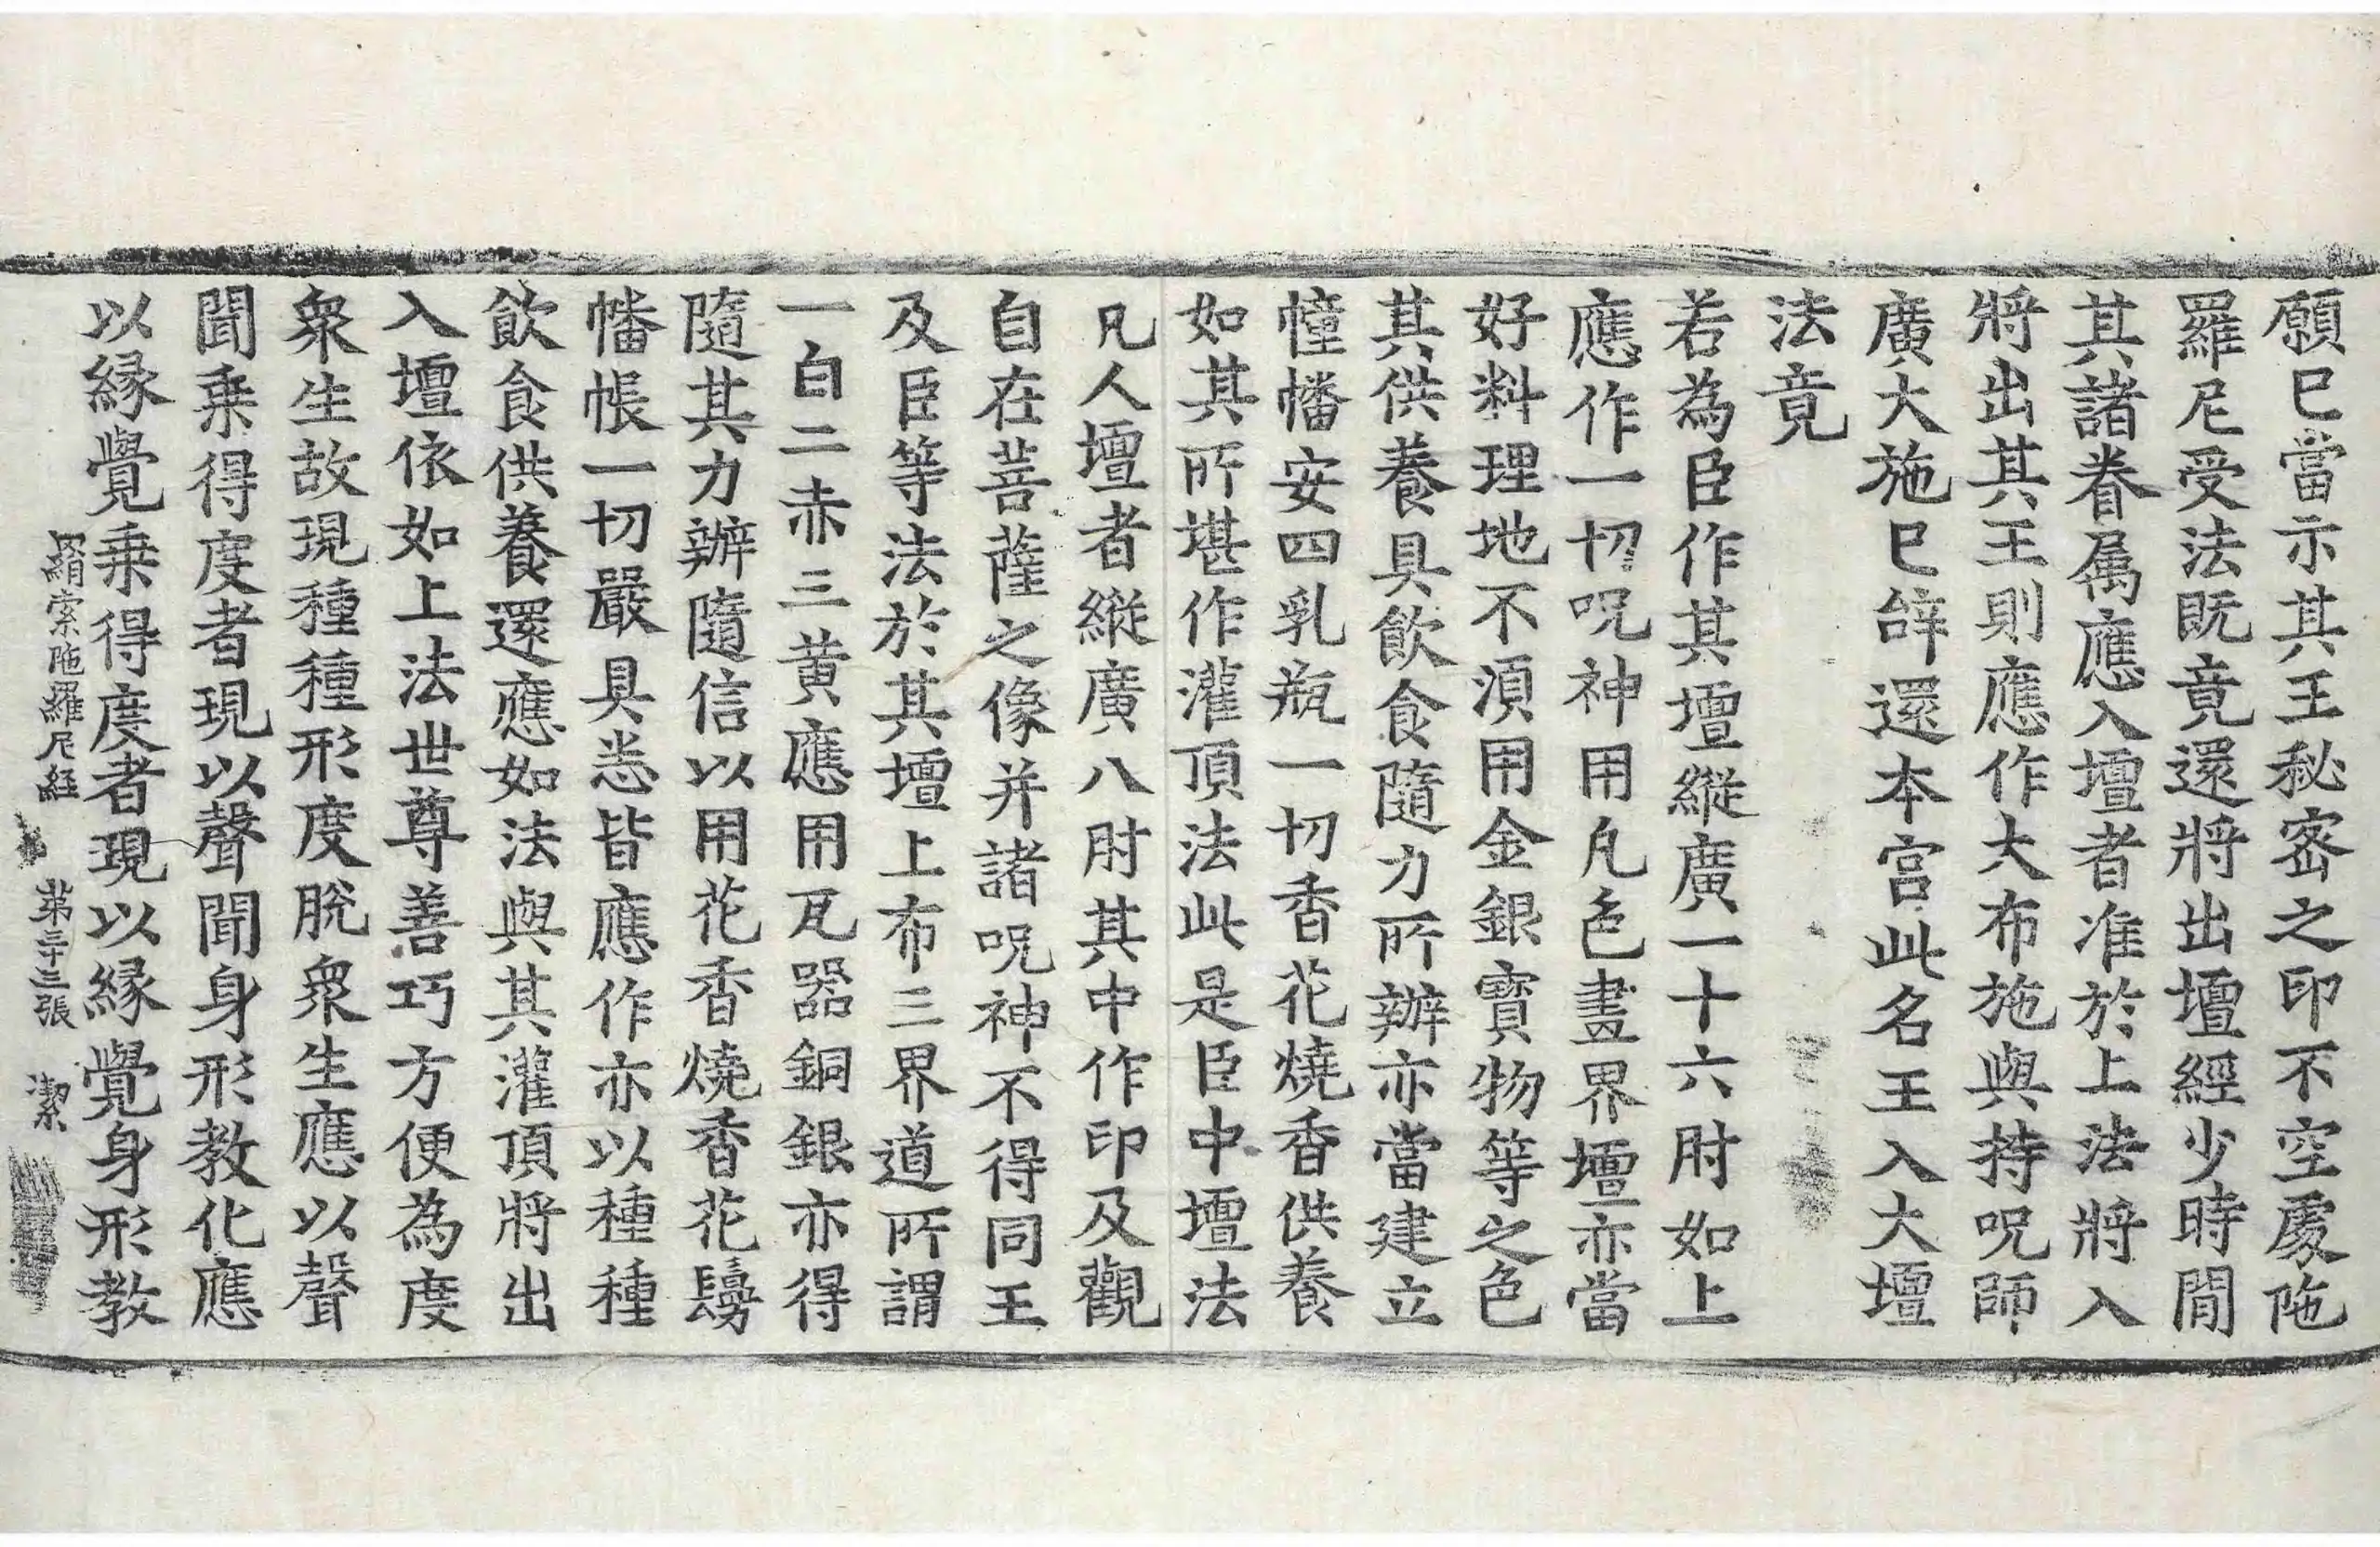 願已當示其王秘密之印不空䍐陁
羅尼受法既竟還將出壇經少時閒
其諸眷属應入壇者准於上法將入
將出其王則應作大布施與持呪師
廣大施已辝還本宮此名王入大壇
法竟
若為臣作其壇縱廣一十六肘如上
應作一切呪神用凢色畫界壇亦當
好料理地不湏用金銀寶物等之色
其供養具飲食隨力所辦亦當建立
幢幡安四乳瓶一切香花燒香供養
如其所堪作灌頂法此是臣中壇法
凡人壇者縱廣八肘其中作印及觀
自在菩薩之像并諸呪神不得同王
及臣等法於其壇上布三界道所謂
一白二赤三黄應用瓦器銅銀亦得
隨其力辦隨信以用花香燒香花鬘
幡帳一切嚴具悉皆應作亦以種種
飲食供養還應如法與其灌頂將出
入壇依如上法世尊善巧方便為度
衆生故現種種形度脫衆生應以聲
聞乗得度者現以聲聞身形教化應
以縁覺乗得度者現以縁覺身形教
羂索陁羅尼經 第三十三張 潔